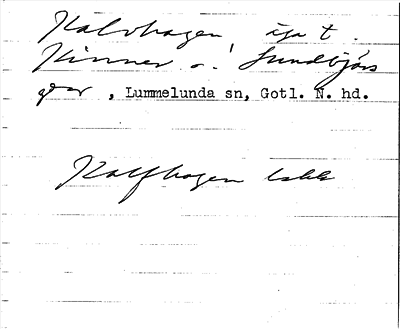 Kalvhagen äga t.
Kinner o. Sundbjärs
gdar, Lummelunda sn, Gotl. N. hd.
Kalfhagen